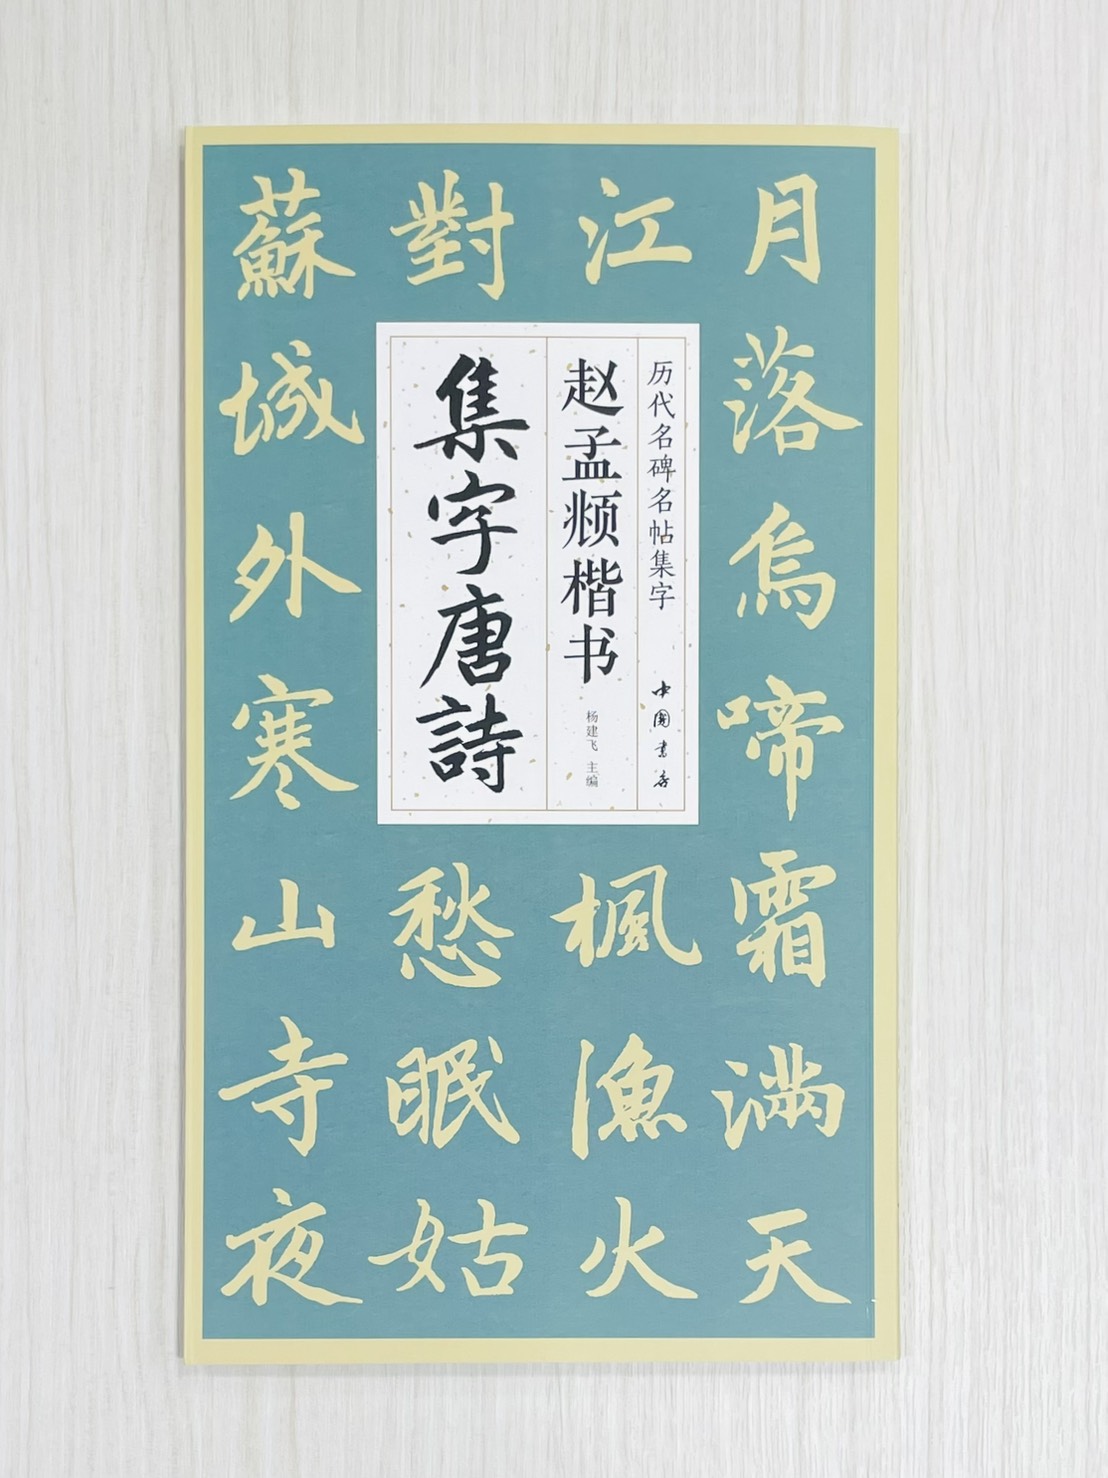 月落烏啼霜滿天
江楓漁火
對愁眠姑
蘇城外寒山寺夜
历代名碑名帖集字
中國書店
赵孟頫楷书
杨建飞 主编
集字唐詩